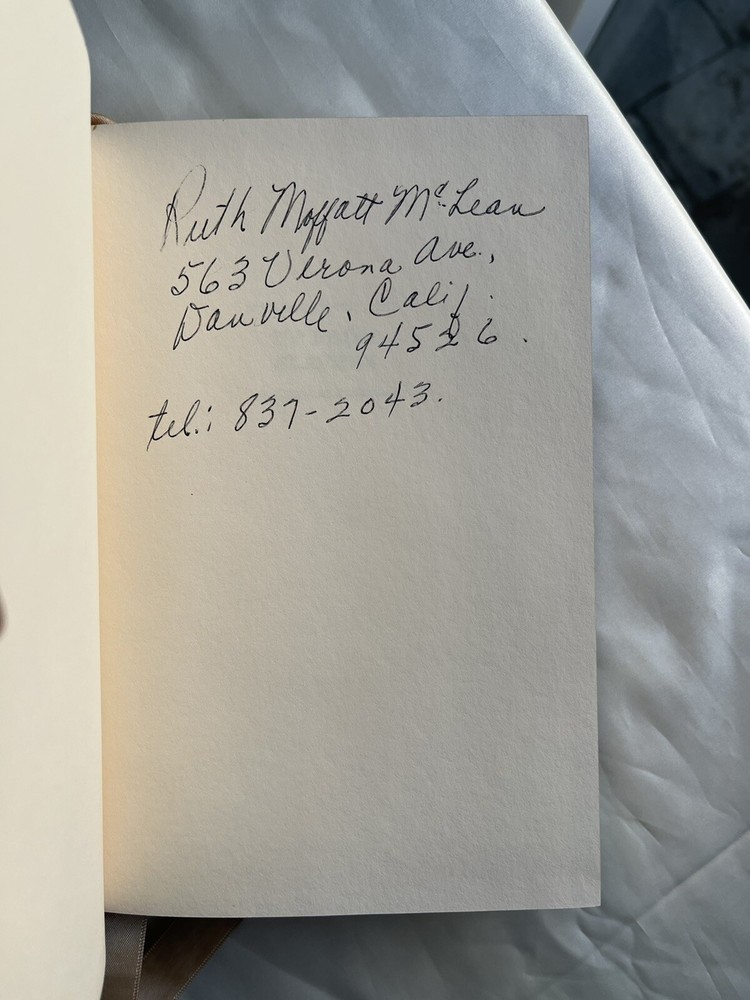 Ruth Moffatt McLean
563 Verona Ave.,
Danville, Calif.
94526.
tel.: 837-2043.